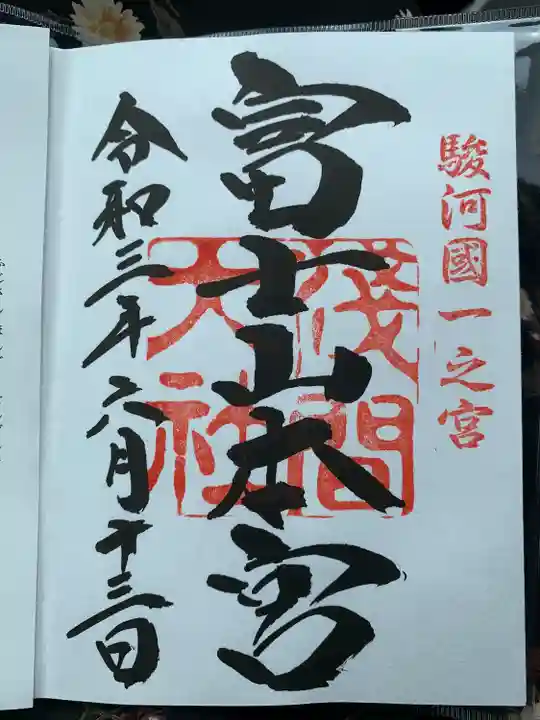 駿河國一之宮
富士山本宮
浅間
大社
令和三年六月十三日